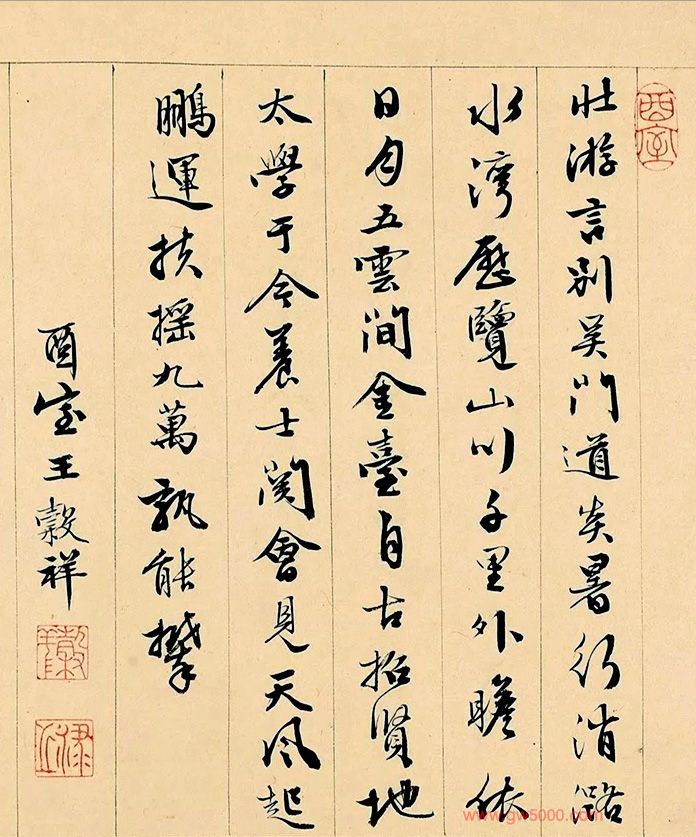 酉室
壯游言別吳門道炎暑行消潞
水灣歷覽山川千里外瞻依
日月五雲間金臺自古招賢地
太學于今養士関會見天風起
鵬運扶摇九萬孰能攀
酉室王穀祥
穀祥
www.gw5000.com